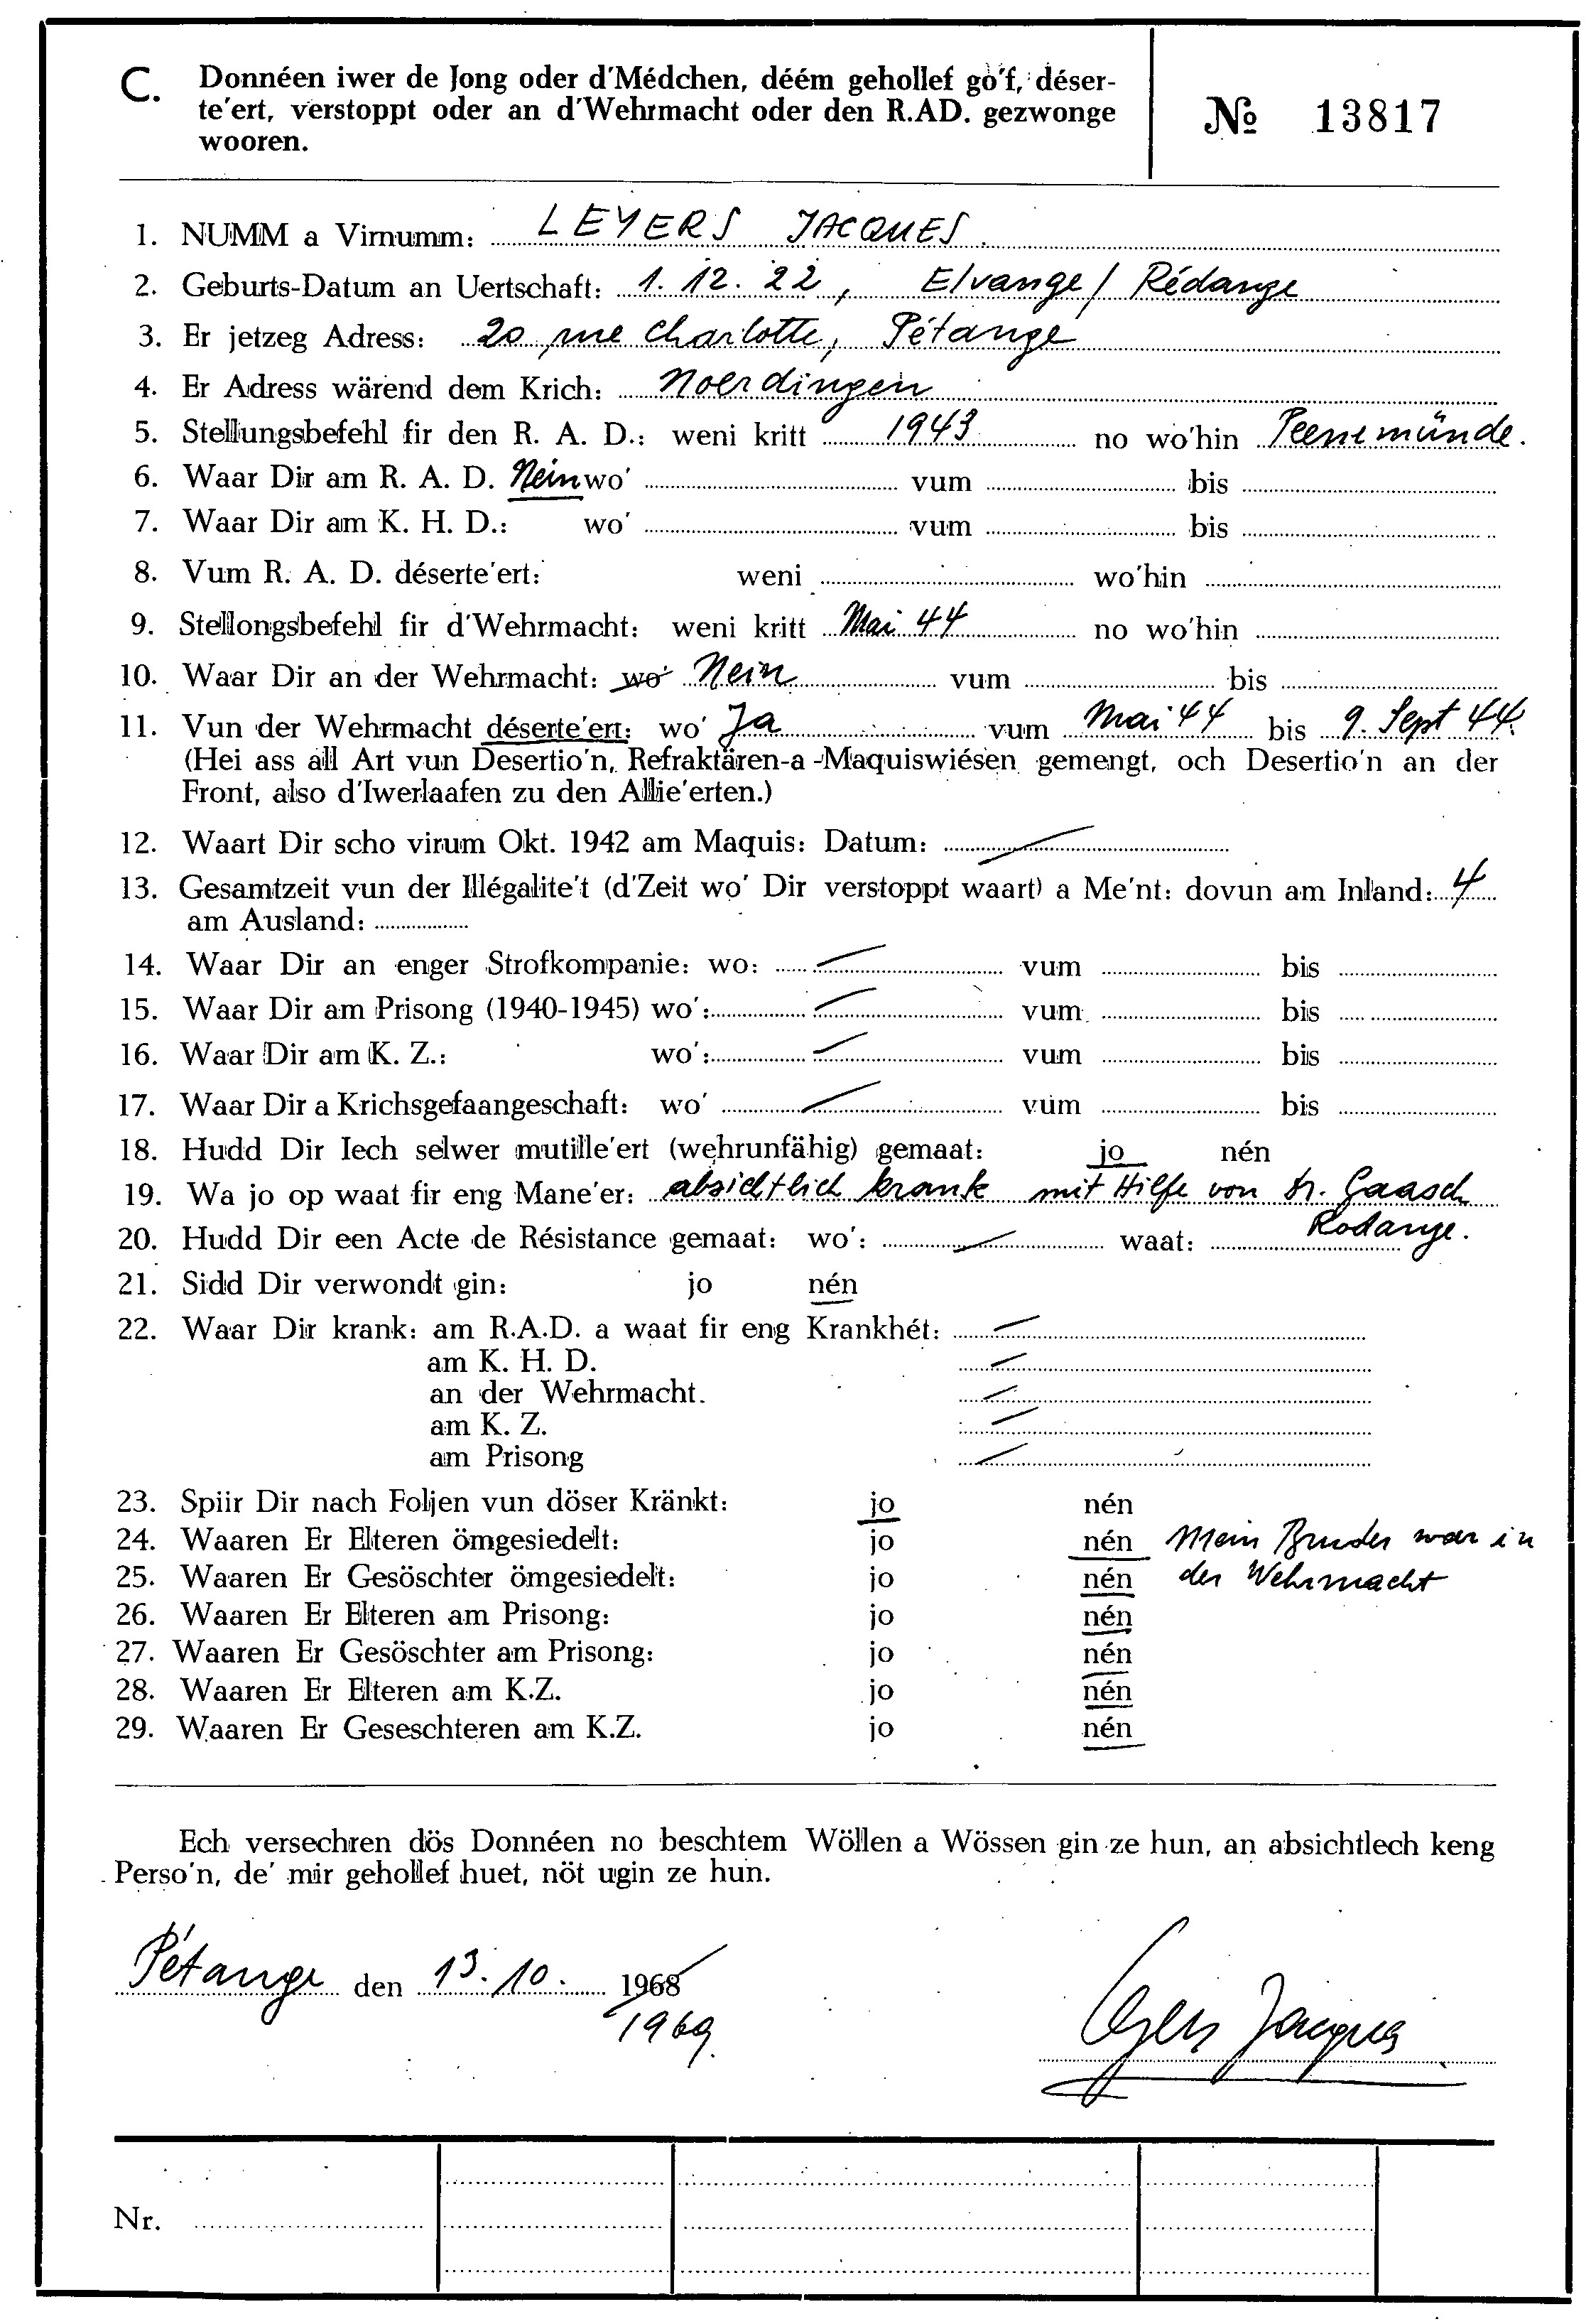 C. Donnéen iwer de Jong oder d'Médchen, déém gehollef go'f, déser-
te'ert, verstoppt oder an d'Wehrmacht oder den R.AD. gezwonge
wooren.
№ 13817
1. NUMM a Virnumm: LEYERS JACQUES
2. Geburts-Datum an Uertschaft: 1. 12. 22, Elvange / Rédange
3. Er jetzeg Adress: 20, rue Charlotte, Pétange
4. Er Adress wärend dem Krich: Noerdingen
5. Stellungsbefehl fir den R. A. D.: weni kritt 1943 no wo'hin Peenemünde.
6. Waar Dir am R. A. D. Nein wo' vum bis
7. Waar Dir am K. H. D.: wo' vum bis
8. Vum R. A. D. déserte'ert: weni wo'hin
9. Stellongsbefehl fir d'Wehrmacht: weni kritt Mai 44 no wo'hin
10. Waar Dir an der Wehrmacht: wo' Nein vum bis
11. Vun der Wehrmacht déserte'ert: wo' Ja vum Mai 44 bis 9. Sept 44.
(Hei ass all Art vun Desertio'n, Refraktären-a -Maquiswiésen gemengt, och Desertio'n an der
Front, also d'Iwerlaafen zu den Allie'erten.)
12. Waart Dir scho virum Okt. 1942 am Maquis: Datum:
13. Gesamtzeit vun der Illégalite't (d'Zeit wo' Dir verstoppt waart) a Me'nt: dovun am Inland: 4
am Ausland:
14. Waar Dir an enger Strofkompanie: wo: vum bis
15. Waar Dir am Prisong (1940-1945) wo': vum bis
16. Waar Dir am K. Z.: wo': vum bis
17. Waar Dir a Krichsgefaangeschaft: wo' vum bis
18. Hudd Dir Iech selwer mutille'ert (wehrunfähig) gemaat: jo nén
19. Wa jo op waat fir eng Mane'er: absichtlich krank mit Hilfe von Dr. Gaasch
Rodange.
20. Hudd Dir een Acte de Résistance gemaat: wo': waat:
21. Sidd Dir verwondt gin: jo nén
22. Waar Dir krank: am R.A.D. a waat fir eng Krankhét:
am K. H. D.
an der Wehrmacht.
am K. Z.
am Prisong
23. Spiir Dir nach Foljen vun döser Kränkt: jo nén
24. Waaren Er Elteren ömgesiedelt: jo nén Mein Bruder war in
25. Waaren Er Gesöschter ömgesiedelt: jo nén der Wehrmacht
26. Waaren Er Elteren am Prisong: jo nén
27. Waaren Er Gesöschter am Prisong: jo nén
28. Waaren Er Elteren am K.Z. jo nén
29. Waaren Er Geseschteren am K.Z. jo nén
Ech versechren dös Donnéen no beschtem Wöllen a Wössen gin ze hun, an absichtlech keng
Perso'n, de' mir gehollef huet, nöt ugin ze hun.
Pétange den 13. 10. 1968
1969.
Leyers Jacques
Nr.